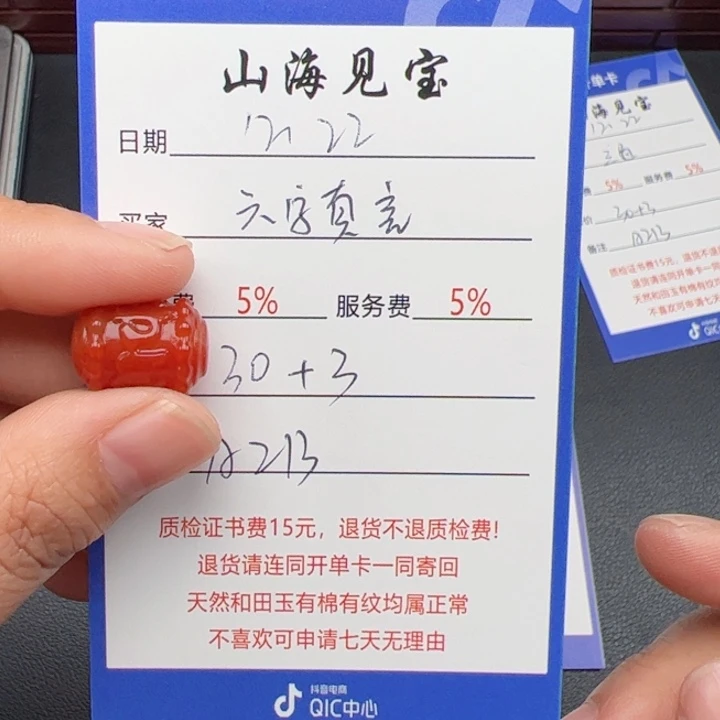 山海见宝
日期 12.22
买家 六字真言
费 5% 服务费 5%
30+3
A213
质检证书费15元，退货不退质检费！
退货请连同开单卡一同寄回
天然和田玉有棉有纹均属正常
不喜欢可申请七天无理由
抖音电商
QIC中心
单卡
海见宝
12.22
费 5% 服务费 5%
价 30+3
备注 A213
质检证书费15元，退货不退
退货请连同开单卡一
天然和田玉有棉有纹
不喜欢可申请七
抖音电商
QIC